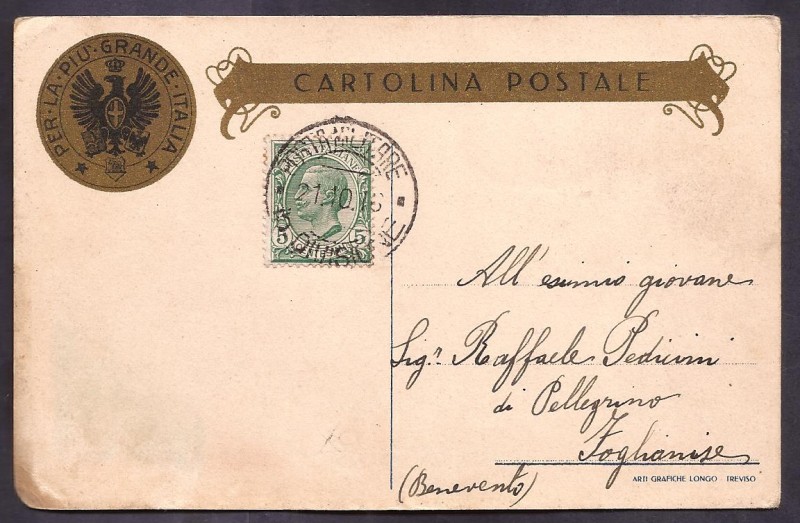 PER·LA·PIÙ·GRANDE·ITALIA
CARTOLINA POSTALE
POSTA MILITARE
21.10.16
DIVISIONE
5 5
All' esimio giovane
Sigr Raffaele Pedicini
di Pellegrino
Foglianise
(Benevento)
ARTI GRAFICHE LONGO TREVISO